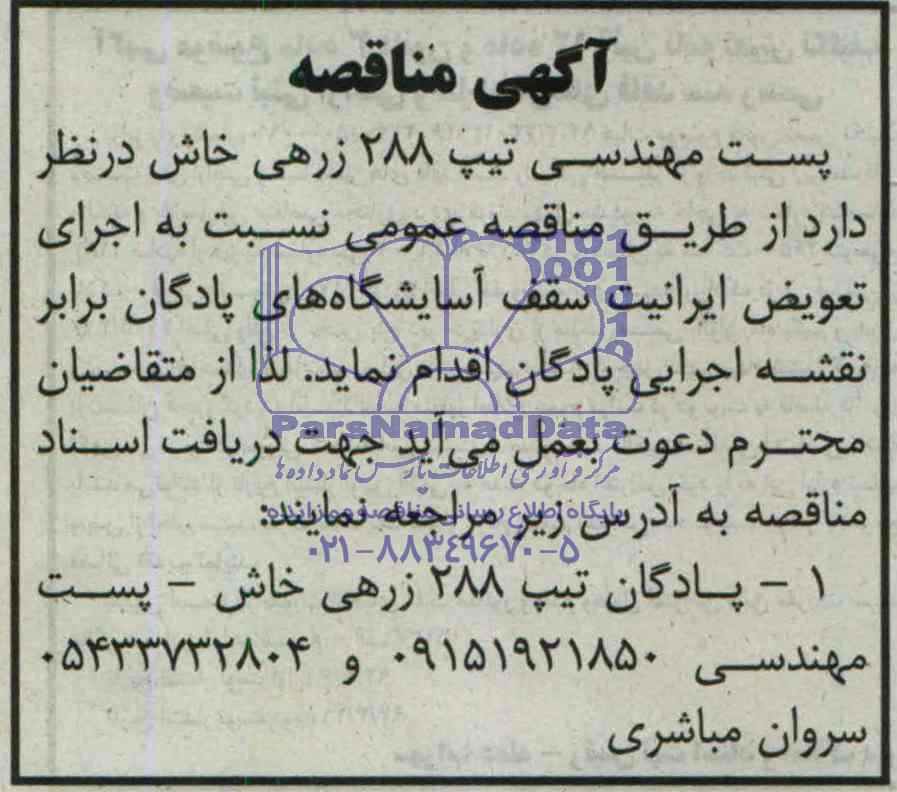 آگهی مناقصه
پست مهندسی تیپ ۲۸۸ زرهی خاش درنظر
دارد از طریق مناقصه عمومی نسبت به اجرای
تعویض ایرانیت سقف آسایشگاه‌های پادگان برابر
نقشه اجرایی پادگان اقدام نماید. لذا از متقاضیان
محترم دعوت بعمل می‌آید جهت دریافت اسناد
مناقصه به آدرس زیر مراجعه نمایند:
۱ – پادگان تیپ ۲۸۸ زرهی خاش – پست
مهندسی ۰۹۱۵۱۹۲۱۸۵۰ و ۰۵۴۳۳۷۳۲۸۰۴
سروان مباشری
ParsNamadData
مرکز فرآوری اطلاعات پارس نماد داده ها
پایگاه اطلاع رسانی مناقصه و مزایده
۰۲۱-۸۸۳۴۹۶۷۰-۵